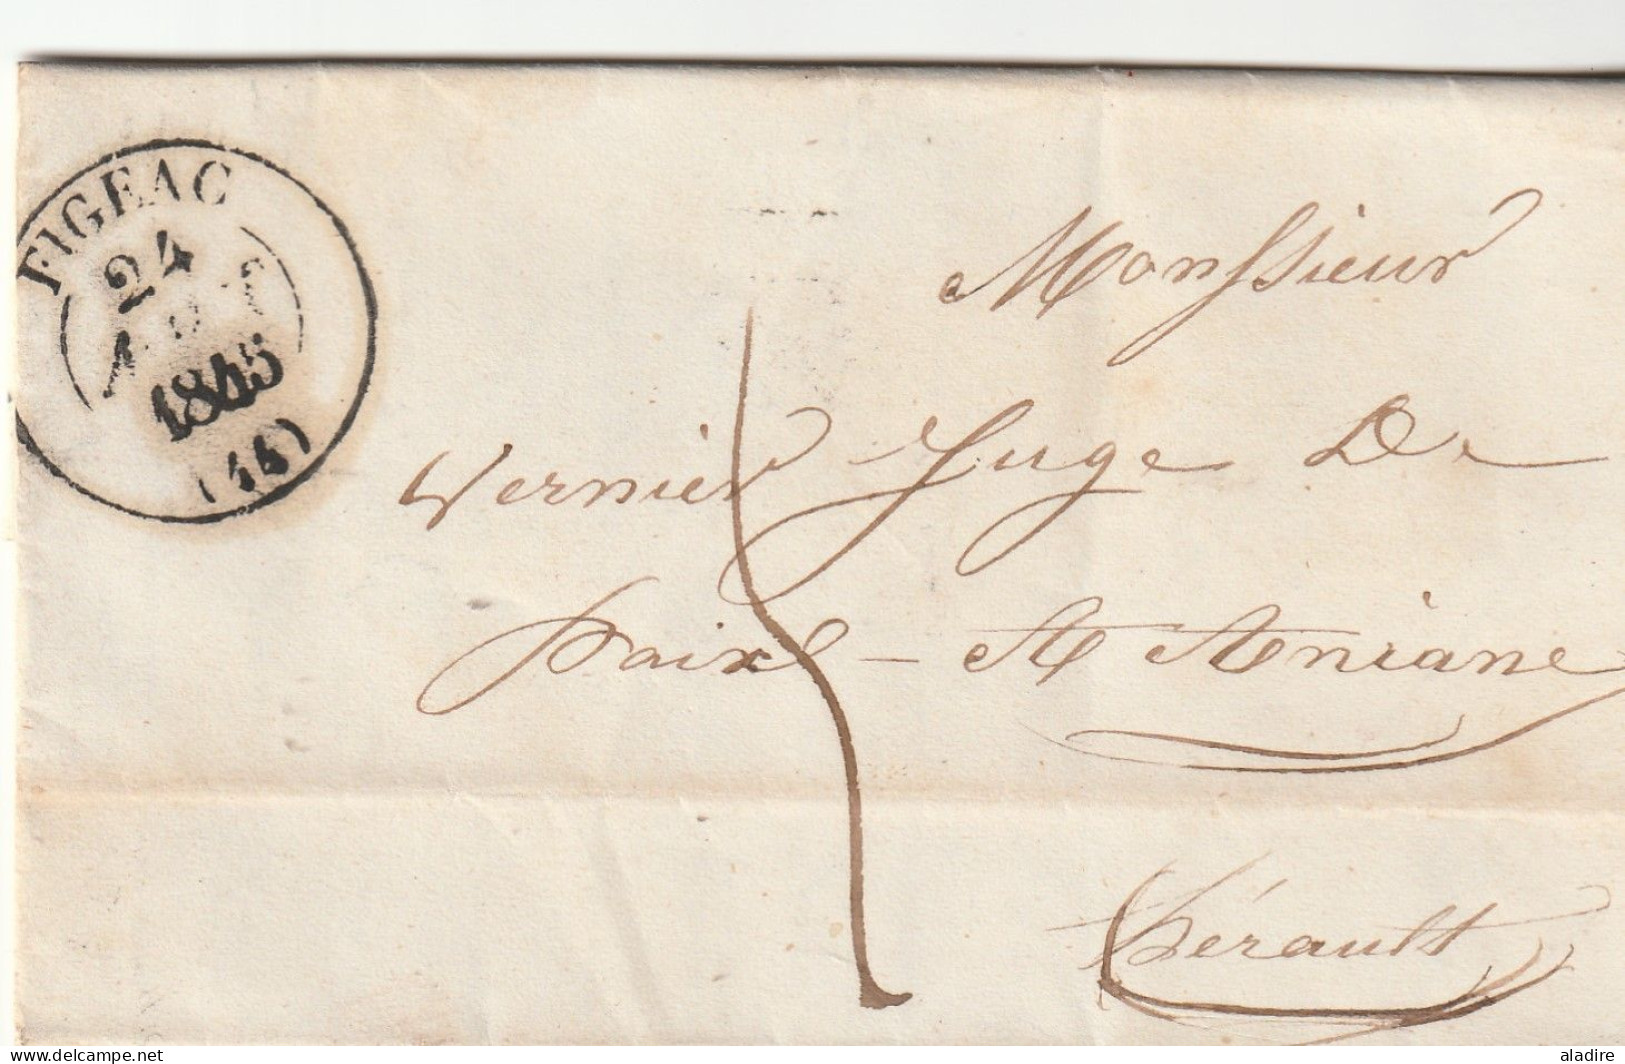 FIGEAC
24
AOUT
1845
(44)
Monsieur
Vernier Juge De
paix à St Aniane
hérault
aladire
delcampe.net